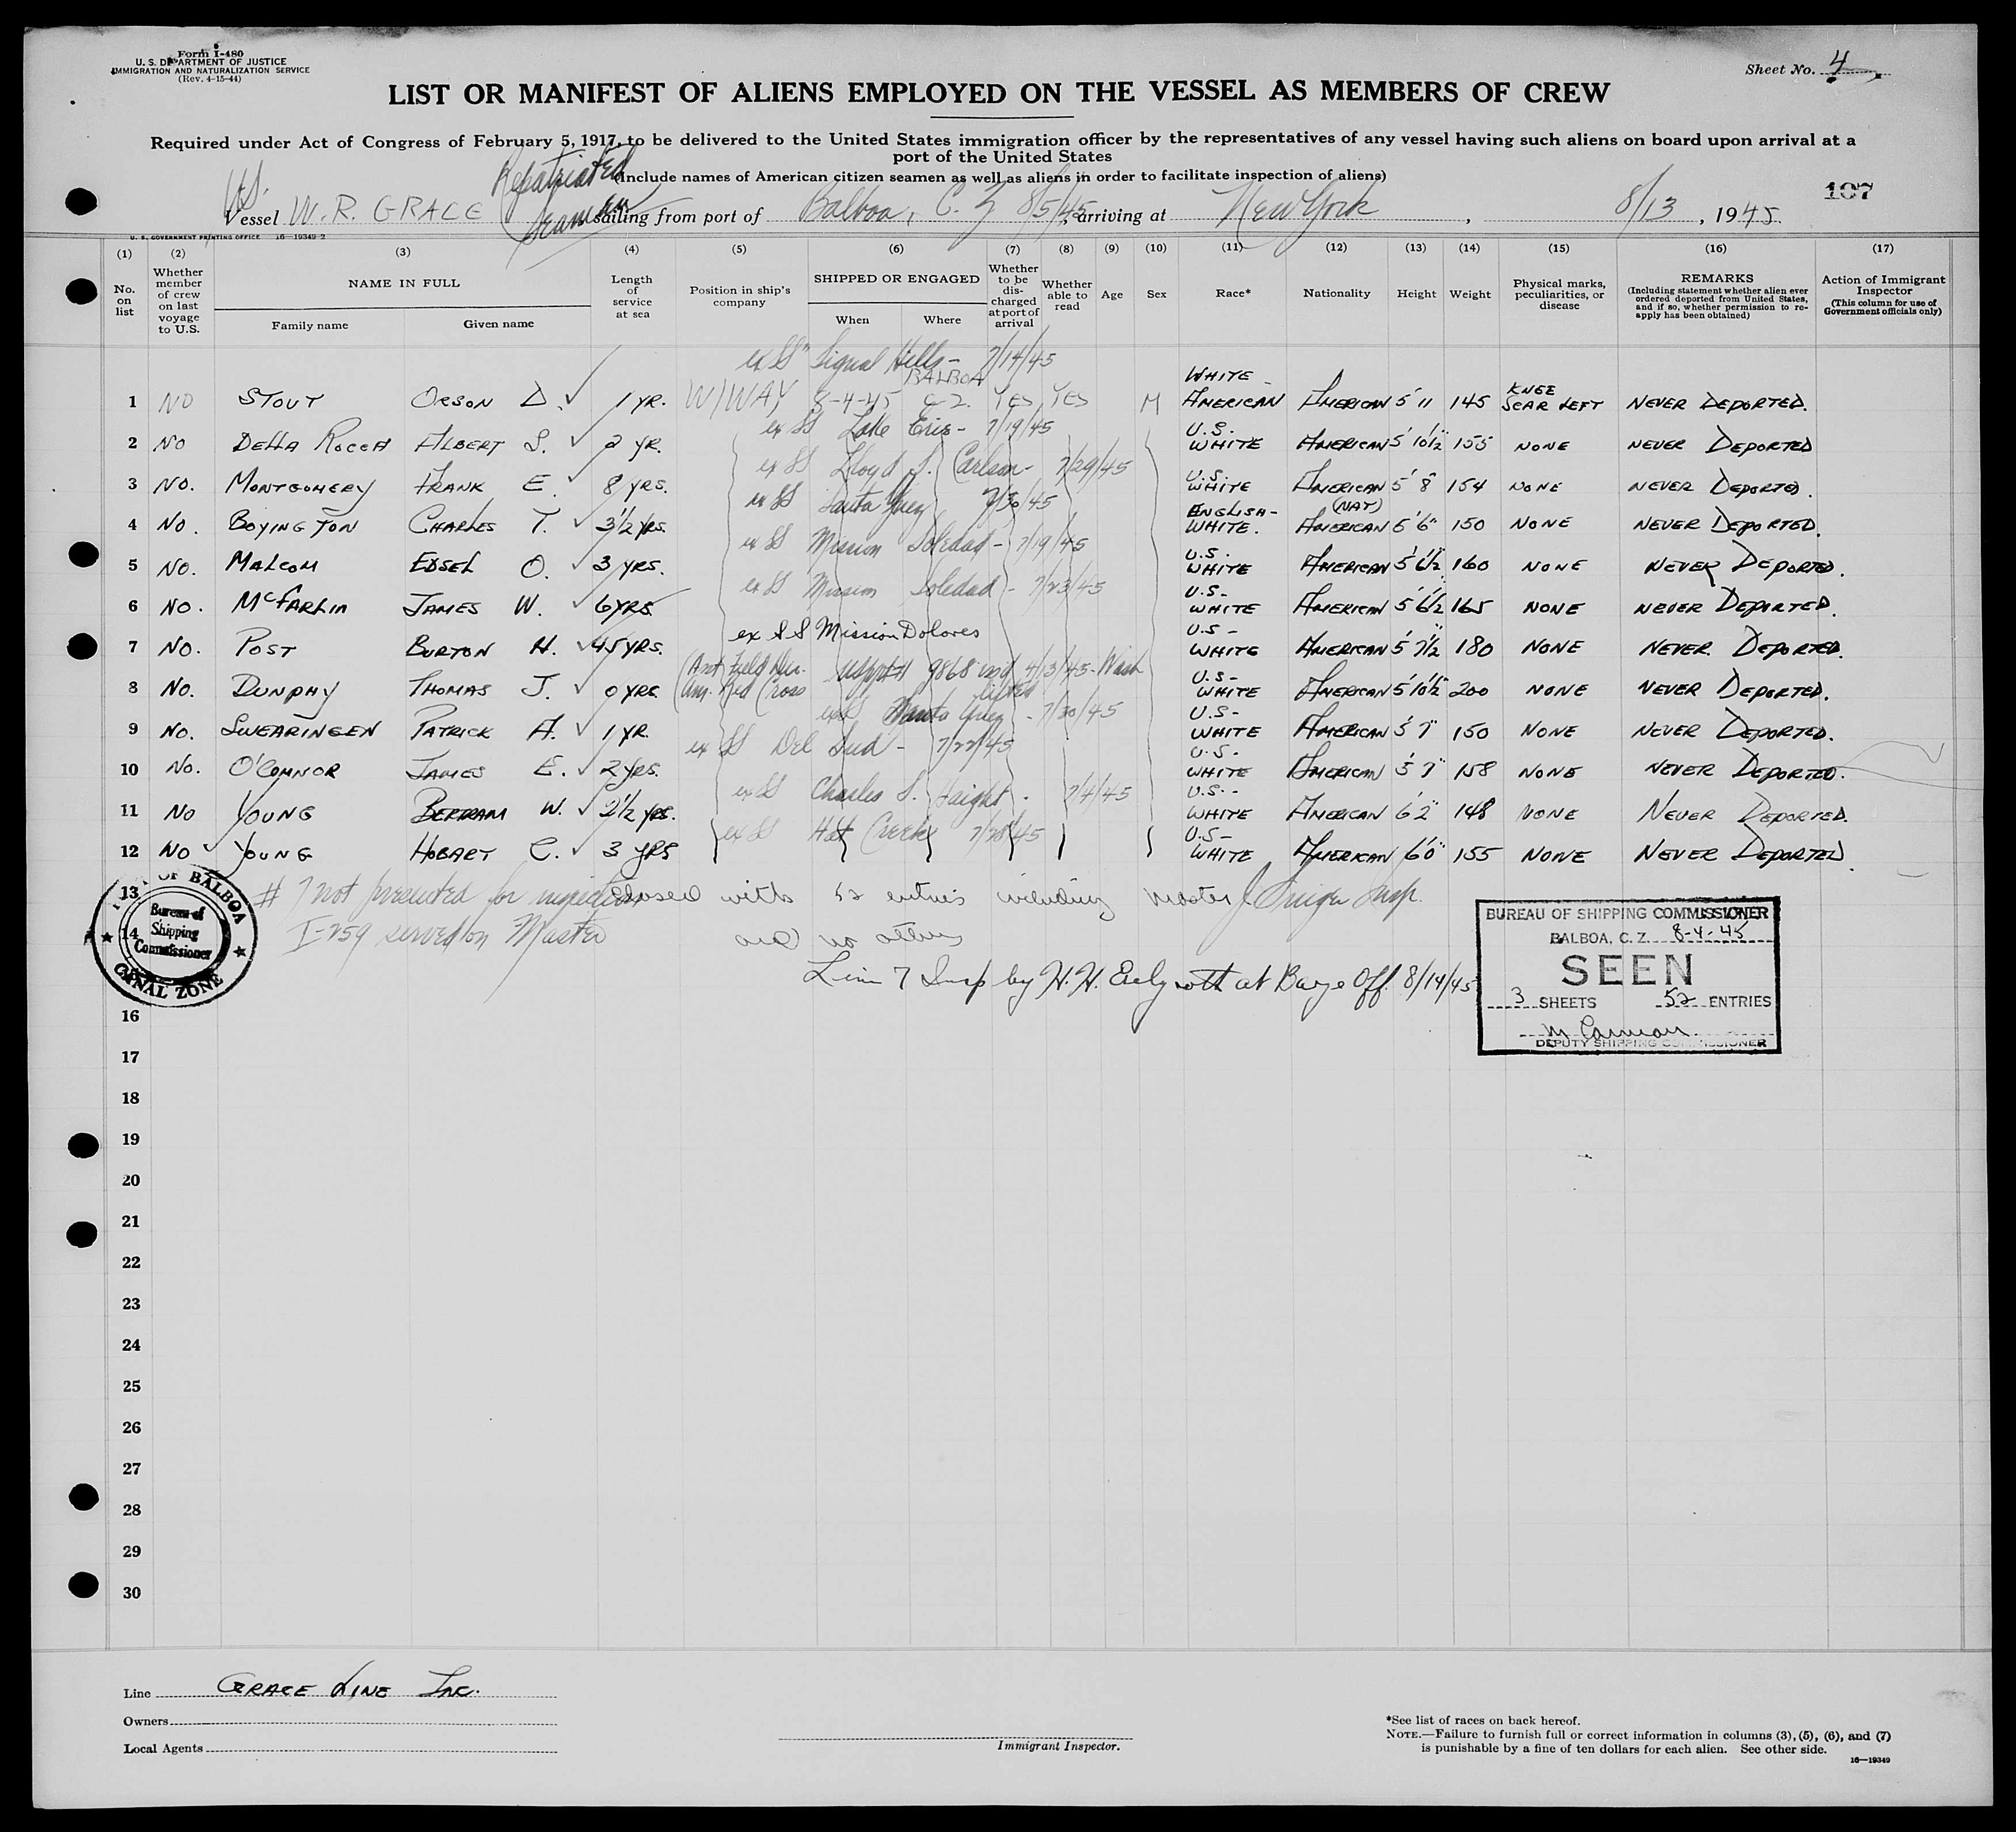 Form I-480
U. S. DEPARTMENT OF JUSTICE
IMMIGRATION AND NATURALIZATION SERVICE
(Rev. 4-15-44)
Sheet No. 4
LIST OR MANIFEST OF ALIENS EMPLOYED ON THE VESSEL AS MEMBERS OF CREW
Required under Act of Congress of February 5, 1917, to be delivered to the United States immigration officer by the representatives of any vessel having such aliens on board upon arrival at a
port of the United States
(Include names of American citizen seamen as well as aliens in order to facilitate inspection of aliens)
Repatriated Seamen
107
U.S.
Vessel W. R. GRACE sailing from port of Balboa, C. Z 8/5/45, arriving at New York, 8/13, 1945.
U. S. GOVERNMENT PRINTING OFFICE 16—19349-2
(1) (2) (3) (4) (5) (6) (7) (8) (9) (10) (11) (12) (13) (14) (15) (16) (17)
No. on list
Whether member of crew on last voyage to U.S.
NAME IN FULL
Family name Given name
Length of service at sea
Position in ship's company
SHIPPED OR ENGAGED
When Where
Whether to be discharged at port of arrival
Whether able to read
Age
Sex
Race*
Nationality
Height
Weight
Physical marks, peculiarities, or disease
REMARKS
(Including statement whether alien ever ordered deported from United States, and if so, whether permission to reapply has been obtained)
Action of Immigrant Inspector
(This column for use of Government officials only)
ex SS Signal Hills - 7/14/45
BALBOA WHITE - KNEE
1 NO STOUT ORSON D. ✓ 1 YR. W/WAY 8-4-45 C Z. YES YES M AMERICAN AMERICAN 5' 11 145 SCAR LEFT NEVER DEPORTED.
ex SS Lake Erie - 7/19/45 U.S.
2 NO DELLA ROCCA ALBERT S. ✓ 2 YR. WHITE AMERICAN 5' 10½" 155 NONE NEVER DEPORTED
ex SS Lloyd S. Carlson - 7/29/45 U.S.
3 NO. MONTGOMERY FRANK E. 8 YRS. WHITE AMERICAN 5' 8 154 NONE NEVER DEPORTED.
ex SS Santa Ynez 7/30/45 ENGLISH - (NAT)
4 NO. BOYINGTON CHARLES T. ✓ 3½ YRS. WHITE. AMERICAN 5' 6" 150 NONE NEVER DEPORTED.
ex SS Mission Soledad - 7/19/45 U.S.
5 NO. MALCOM EDSEL O. ✓ 3 YRS. WHITE AMERICAN 5' 6½" 160 NONE NEVER DEPORTED.
ex SS Mission Soledad - 7/23/45 U.S-
6 NO. McFARLIN JAMES W. ✓ 6 YRS WHITE AMERICAN 5' 6½ 165 NONE NEVER DEPORTED.
ex SS Mission Dolores U.S -
7 NO. POST BURTON H. ✓ 45 YRS. WHITE AMERICAN 5' 7½" 180 NONE NEVER DEPORTED.
Am. Red Cross 4/13/45 - Wash U.S-
8 NO. DUNPHY THOMAS J. ✓ 0 YRS WHITE AMERICAN 5' 10½" 200 NONE NEVER DEPORTED.
ex SS Santa Ynez - 7/30/45 U.S-
9 NO. SWEARINGEN PATRICK A. ✓ 1 YR WHITE AMERICAN 5' 7" 150 NONE NEVER DEPORTED.
ex SS Del Sud - 7/22/45 U.S-
10 NO. O'CONNOR JAMES E. ✓ 2 YRS. WHITE AMERICAN 5' 7" 158 NONE NEVER DEPORTED.
ex SS Charles S. Haight - 7/4/45 U.S.-
11 NO YOUNG BERTRAM W. ✓ 2½ YRS. WHITE AMERICAN 6' 2" 148 NONE NEVER DEPORTED.
ex SS Hat Creek 7/28/45 U.S-
12 NO ✓ YOUNG HOBART C. ✓ 3 YRS WHITE AMERICAN 6' 0" 155 NONE NEVER DEPORTED.
13 # 7 not presented for inspection Closed with 52 entries including master Insp.
14 I-259 served on Master and no others
Line 7 Insp by H. H. at Barge Off. 8/14/45
16
17
18
19
20
21
22
23
24
25
26
27
28
29
30
OF BALBOA
Bureau of
Shipping
Commissioner
CANAL ZONE
BUREAU OF SHIPPING COMMISSIONER
BALBOA, C. Z. 8-4-45
SEEN
3 SHEETS 52 ENTRIES
DEPUTY SHIPPING COMMISSIONER
Line GRACE LINE INC.
Owners
Local Agents
Immigrant Inspector.
*See list of races on back hereof.
NOTE.—Failure to furnish full or correct information in columns (3), (5), (6), and (7)
is punishable by a fine of ten dollars for each alien. See other side.
16—19349